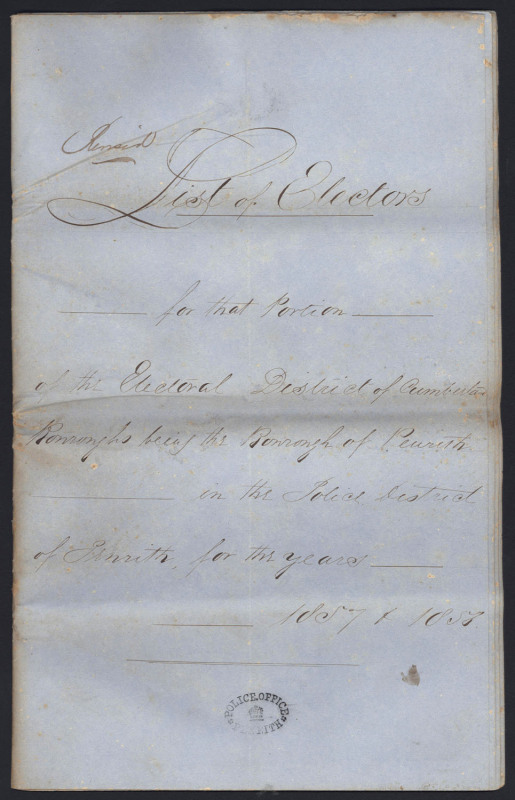 Revised
List of Electors
for that Portion
of the Electoral District of Cumberlan
Bonroughs being the Bonrough of Penrith
in the Police District
of Penrith, for the years
1857 & 1858
POLICE OFFICE
PENRITH